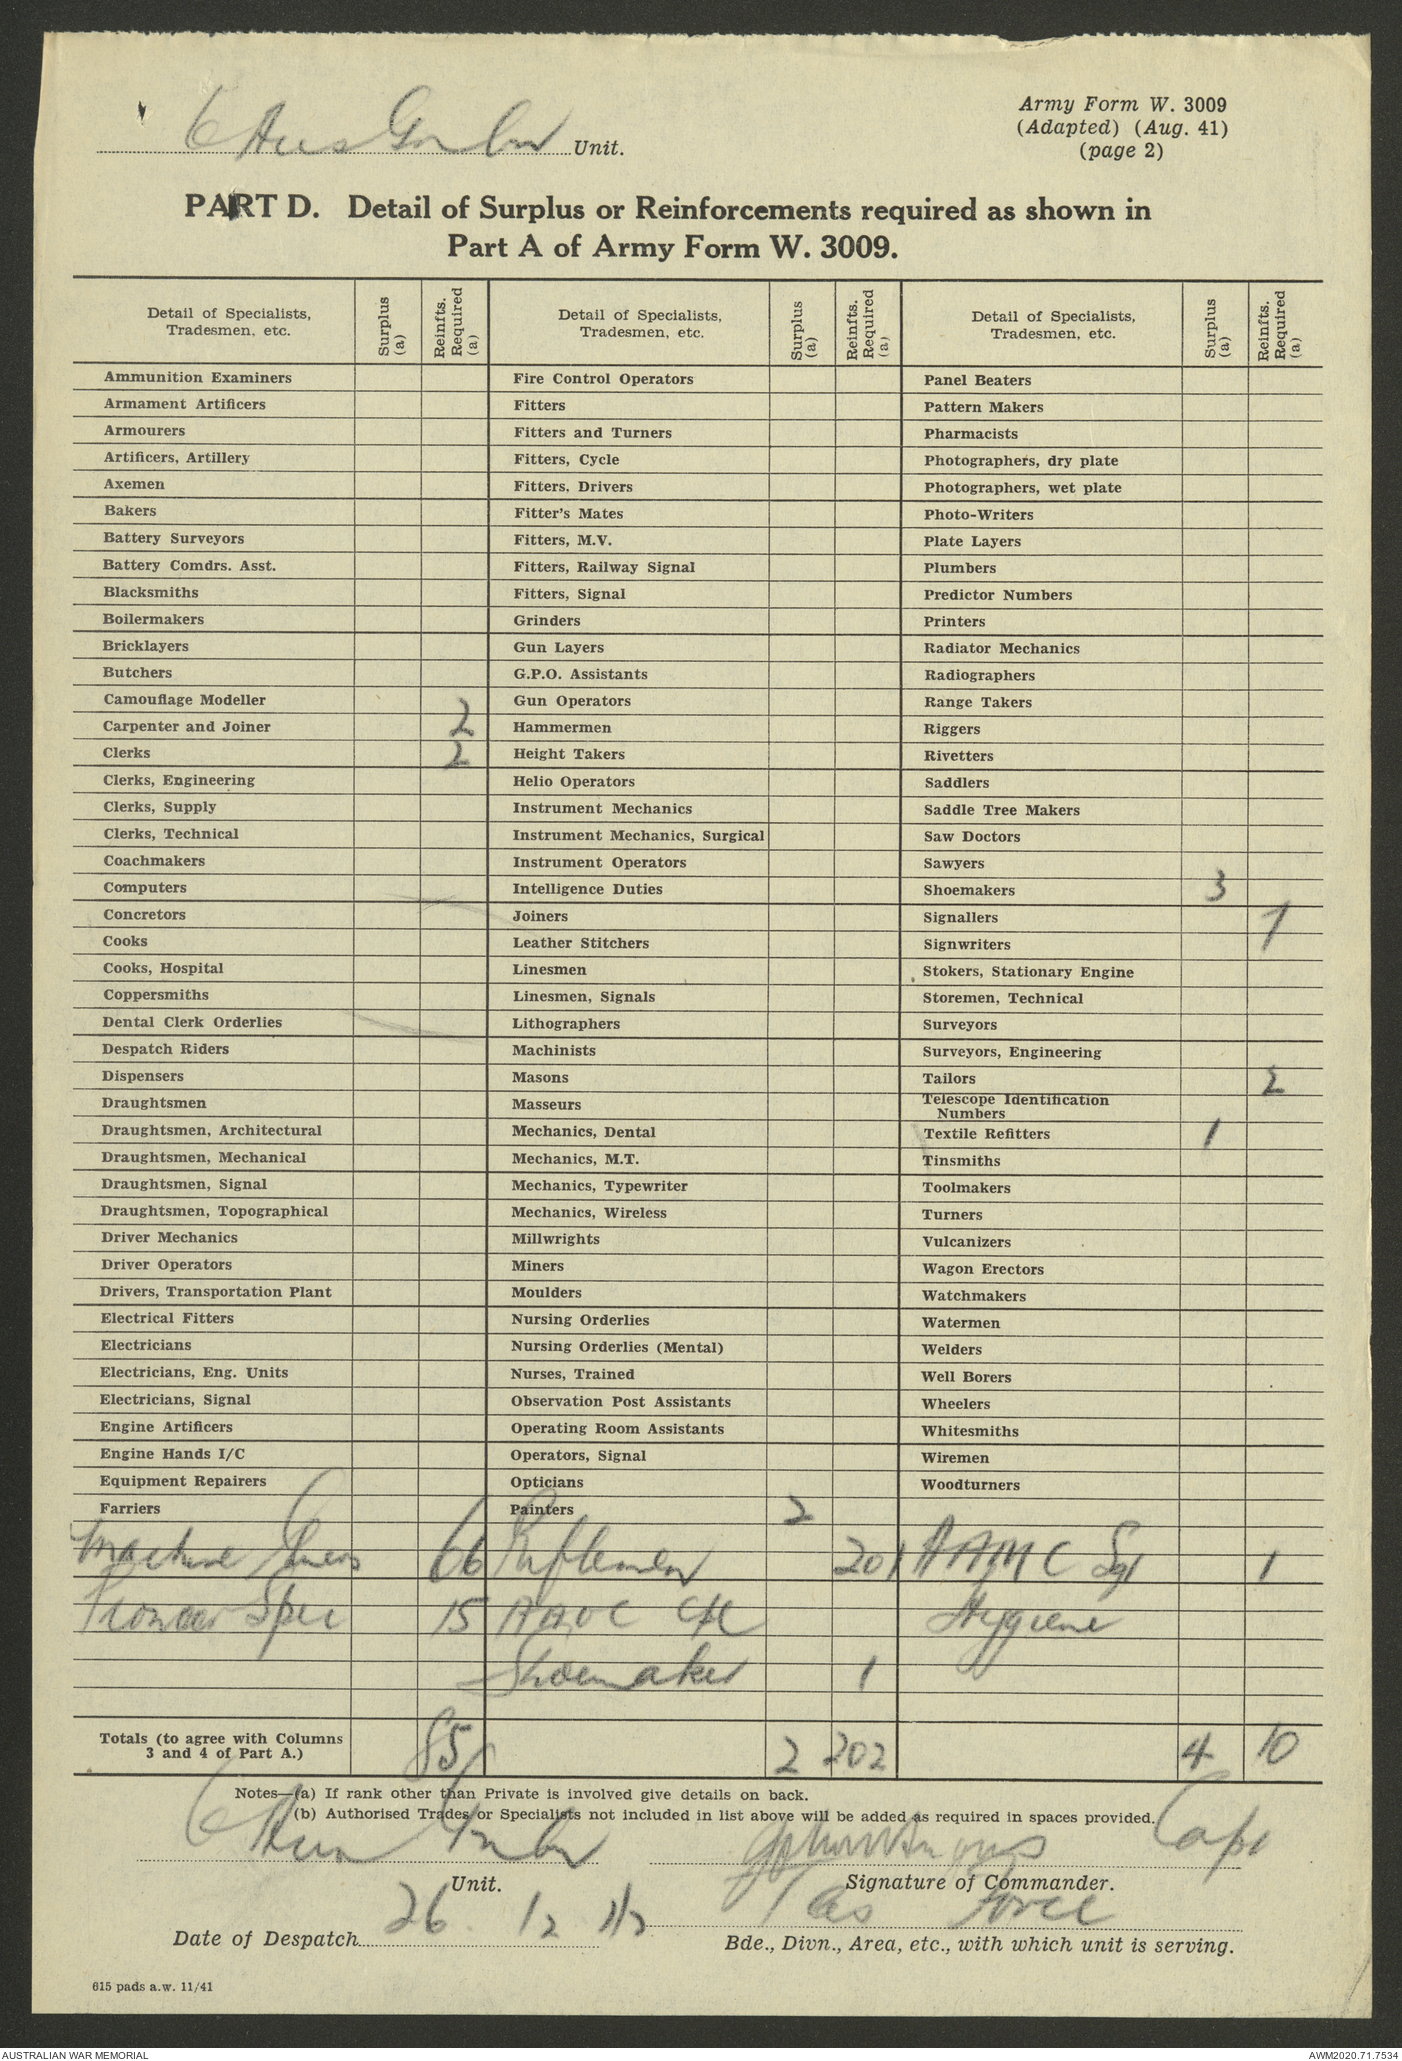 6 Aus Inf Bn Unit.
Army Form W. 3009
(Adapted) (Aug. 41)
(page 2)
PART D. Detail of Surplus or Reinforcements required as shown in
Part A of Army Form W. 3009.
Detail of Specialists, Tradesmen, etc. Surplus (a) Reinfts. Required (a) Detail of Specialists, Tradesmen, etc. Surplus (a) Reinfts. Required (a) Detail of Specialists, Tradesmen, etc. Surplus (a) Reinfts. Required (a)
Ammunition Examiners Fire Control Operators Panel Beaters
Armament Artificers Fitters Pattern Makers
Armourers Fitters and Turners Pharmacists
Artificers, Artillery Fitters, Cycle Photographers, dry plate
Axemen Fitters, Drivers Photographers, wet plate
Bakers Fitter's Mates Photo-Writers
Battery Surveyors Fitters, M.V. Plate Layers
Battery Comdrs. Asst. Fitters, Railway Signal Plumbers
Blacksmiths Fitters, Signal Predictor Numbers
Boilermakers Grinders Printers
Bricklayers Gun Layers Radiator Mechanics
Butchers G.P.O. Assistants Radiographers
Camouflage Modeller Gun Operators Range Takers
Carpenter and Joiner 2 Hammermen Riggers
Clerks 2 Height Takers Rivetters
Clerks, Engineering Helio Operators Saddlers
Clerks, Supply Instrument Mechanics Saddle Tree Makers
Clerks, Technical Instrument Mechanics, Surgical Saw Doctors
Coachmakers Instrument Operators Sawyers
Computers Intelligence Duties Shoemakers 3
Concretors Joiners Signallers 7
Cooks Leather Stitchers Signwriters
Cooks, Hospital Linesmen Stokers, Stationary Engine
Coppersmiths Linesmen, Signals Storemen, Technical
Dental Clerk Orderlies Lithographers Surveyors
Despatch Riders Machinists Surveyors, Engineering
Dispensers Masons Tailors 2
Draughtsmen Masseurs Telescope Identification Numbers
Draughtsmen, Architectural Mechanics, Dental Textile Refitters 1
Draughtsmen, Mechanical Mechanics, M.T. Tinsmiths
Draughtsmen, Signal Mechanics, Typewriter Toolmakers
Draughtsmen, Topographical Mechanics, Wireless Turners
Driver Mechanics Millwrights Vulcanizers
Driver Operators Miners Wagon Erectors
Drivers, Transportation Plant Moulders Watchmakers
Electrical Fitters Nursing Orderlies Watermen
Electricians Nursing Orderlies (Mental) Welders
Electricians, Eng. Units Nurses, Trained Well Borers
Electricians, Signal Observation Post Assistants Wheelers
Engine Artificers Operating Room Assistants Whitesmiths
Engine Hands I/C Operators, Signal Wiremen
Equipment Repairers Opticians Woodturners
Farriers Painters 2
Machine Gnrs 66 Riflemen 201 AAMC Sgt 1
Pioneer Spec 15 AAOC Cpl Hygiene
Shoemaker 1
Totals (to agree with Columns 3 and 4 of Part A.) 85 2 202 4 10
Notes—(a) If rank other than Private is involved give details on back.
(b) Authorised Trades or Specialists not included in list above will be added as required in spaces provided.
6 Aus Inf Bn Capt
Unit. Signature of Commander.
26 12 Force
Date of Despatch Bde., Divn., Area, etc., with which unit is serving.
615 pads a.w. 11/41
AUSTRALIAN WAR MEMORIAL AWM2020.71.7534